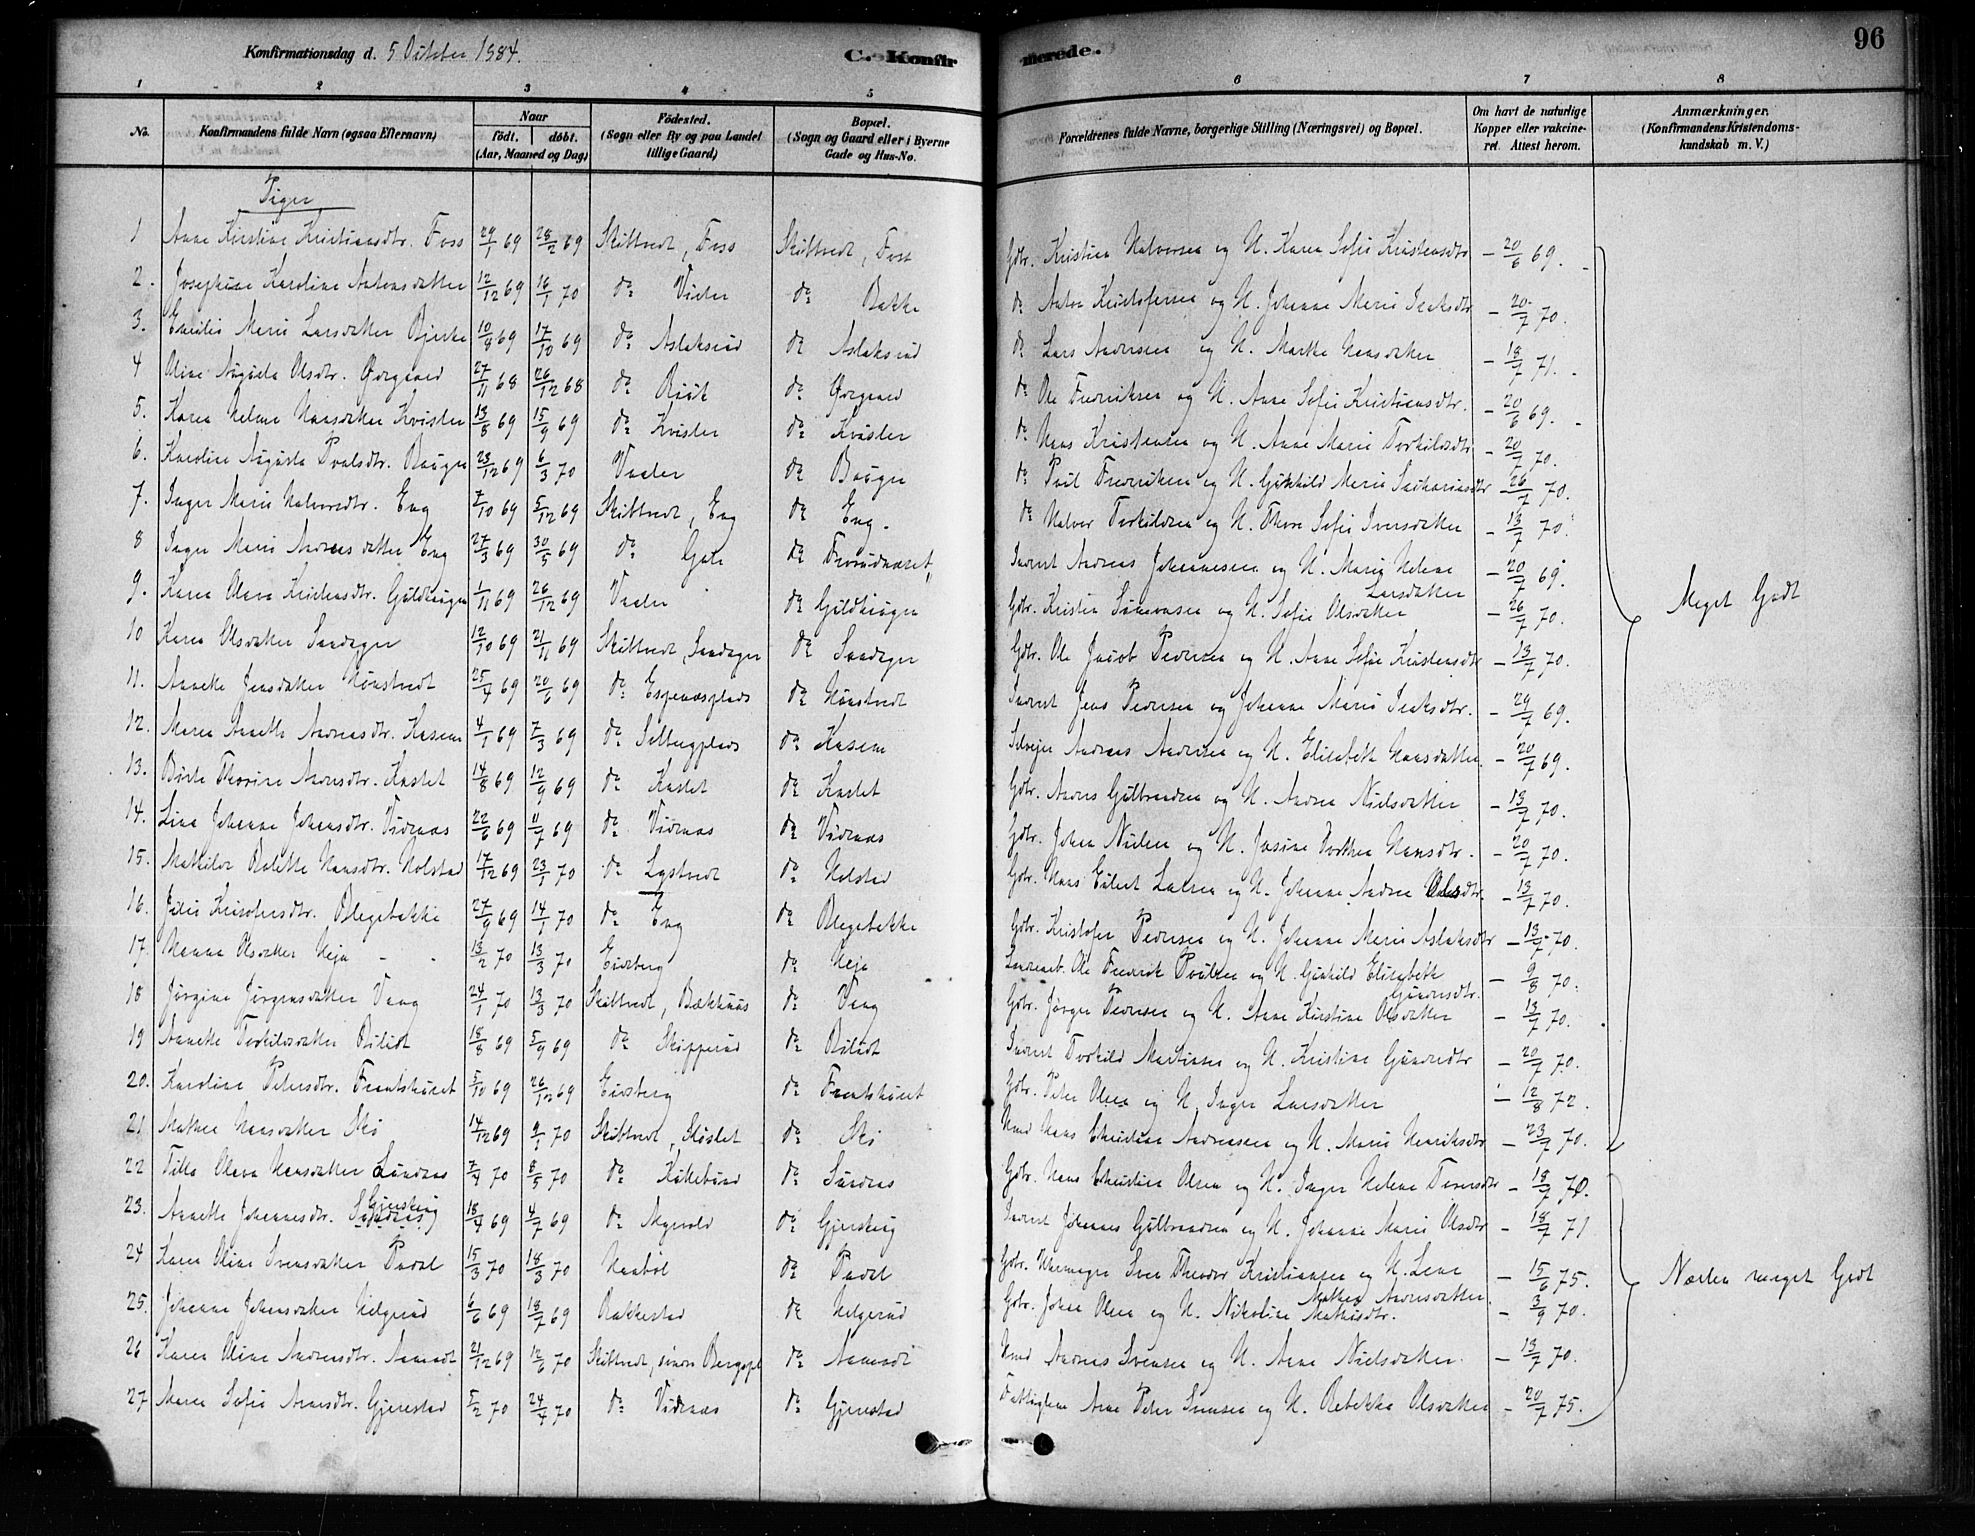 Konfirmationsdag d. 5 October 1884.
C. Konfirmerede.
96
1 2 3 4 5 6 7 8
No. | Konfirmandens fulde Navn (ogsaa Efternavn) | Naar født. døbt. (Aar, Maaned og Dag) | Fødested. (Sogn eller By og paa Landet tillige Gaard) | Bopæl. (Sogn og Gaard eller i Byerne Gade og Hus-No. | Forældrenes fulde Navne, borgerlige Stilling (Næringsvei) og Bopæl. | Om havt de naturlige Kopper eller vakcineret. Attest herom. | Anmærkninger. (Konfirmandens Kristendomskundskab m. V.)
Piger
1 Anne Kirstine Kristiansdtr. Foss 29/1 69 28/2 69 Skiptvedt, Foss Skiptvedt, Foss Gdbr. Kristian Halvorsen og H. Karen Sofie Kristensdtr - 20/6 69.
2. Josephine Karoline Antonsdatter 12/12 69 16/1 70 do Vister do Bakke do Anton Kristofersen og H. Johanne Marie Isaksdtr - 20/7 70.
3. Emilie Marie Larsdatter Bjerke 10/8 69 17/10 69 do Aslaksrud do Aslaksrud do Lars Andersen og H. Marthe Hansdatter - 18/7 71.
4 Oline Augusta Olsdtr. Øvregaard 27/11 68 26/12 68 do do do Ole Fredriksen og H. Anne Sofie Kristiansdtr. - 20/6 69.
5. Karen Helene Hansdatter Kvisler 13/8 69 15/9 69 do Kvisler do Kvisler do Hans Kristensen og H. Anne Marie Torkildsdtr - 20/7 70.
6. Karoline Augusta Poulsdtr. Haugen 23/12 69 6/3 70 Vaaler do Haugen do Poul Fredriksen og H. Gunhild Marie Sachariasdtr - 26/7 70.
7. Inger Marie Halvorsdtr. Eng 7/10 69 5/12 69 Skiptvedt, Eng do Eng. do Halvor Torkildsen og H. Thore Sofie Iversdatter - 13/7 70.
8 Inger Marie Andreasdatter Eng 27/3 69 30/5 69 do do Inderst Andreas Johannesen og H. Marie Helene Larsdatter - 20/7 69.
9. Karen Olava Kristensdtr. Guldhaugen 1/11 69 26/12 69 Vaaler do Guldhaugen Gdbr. Kristen Simensen og H. Sofie Olsdatter - 26/7 70.
10 Karen Olsdatter Sandager 12/10 69 21/11 69 Skiptvedt, Sandager do Sandager Gdbr. Ole Jacob Pedersen og H. Anne Sofie Kristensdtr - 13/7 70.
11. Annette Jensdatter Hønstvedt 25/4 69 20/6 69 do Espenæsplads do Hønstvedt Inderst Jens Pedersen og Johanne Marie Isaksdtr. - 29/7 69.
12. Maren Annette Andreasdtr. Kasem 4/1 69 7/3 69 do Solbergplads do Kasem Selveier Andreas Andersen og H. Elisabeth Hansdatter - 20/7 69.
13. Thorine Andersdtr. Kaslet 14/8 69 12/9 69 do Kaslet do Kaslet Gdbr. Anders Gulbrandsen og H. Andrea Nielsdatter - 13/7 70.
14. Lina Johanne Johansdtr. Vidnæs 22/6 69 11/7 69 do Vidnæs do Vidnæs Gdbr. Johan Nielsen og H. Josine Dorthea Hansdtr. - 20/7 70.
15. Mathilde Hansdtr. Holstad 17/12 69 23/1 70 do Lystvedt do Holstad Gdbr. Hans Eilert Larsen og H. Johanne Andrea Olsdtr. - 13/7 70.
16. Julie Kristofersdtr. Blegebakke 27/9 69 14/1 70 do Eng do Blegebakke Gdbr. Kristofer Pedersen og H. Johanne Marie Aslaksdtr - 13/7 70.
17. Hanna Olsdatter Heja 13/2 70 13/3 70 Eidsberg do Heja Ole Fredrik Poulsen og H. Gunhild Elisabeth Gundersdtr. - 9/8 70.
18 Jørgine Jørgensdatter Vang 24/1 70 13/3 70 Skiptvedt, Bækkhuus do Vang Gdbr. Jørgen Pedersen og H. Anne Kirstine Olsdatter - 13/7 70.
19 Annette Torkildsdatter 18/8 69 5/9 69 do Skipperud do Inderst Torkild Martinsen og H. Kristine Gundersdtr - 20/7 70.
20. Karoline Petersdtr. 5/10 69 26/12 69 Eidsberg do Gdbr. Peter Olsen og H. Inger Larsdatter - 12/8 72.
21 Mathea Hansdatter Ski 14/12 69 9/1 70 Skiptvedt, do Ski Hans Christian Andreassen og H. Marie Henriksdtr - 23/7 70.
Meget Godt
22 Tilla Olava Hansdatter Sundnæs 7/4 70 8/5 70 do do Sundnæs Gdbr. Hans Christian Olsen og H. Inger Helene Iversdtr - 18/7 70.
23. Annette Johannesdtr. Gjersting 18/4 69 4/7 69 do do Gjersting Inderst Johannes Gulbrandsen og H. Johanne Marie Olsdtr - 18/7 71
24 Karen Oline Svensdatter Padal 15/3 70 18/3 70 do Padal Gdbr. Sven Theodor Kristiansen og H. Lene Mathea Andersdatter - 15/6 75.
25. Johanne Johansdatter Helgerud 6/6 69 18/7 69 Rakkestad do Helgerud Gdbr. Johan Olsen og H. Nikoline Mathisdtr. - 3/9 70.
26 Karen Oline Andreasdtr. 21/12 69 12/6 70 Skiptvedt, do Andreas Svensen og H. Anne Nielsdatter. - 13/7 70.
27 Maren Sofie Arnesdtr. Gjerestad 5/2 70 24/4 70 do Vidnæs do Gjerestad Arne Peter og H. Rebekka Olsdatter - 20/7 75.
Næsten meget Godt